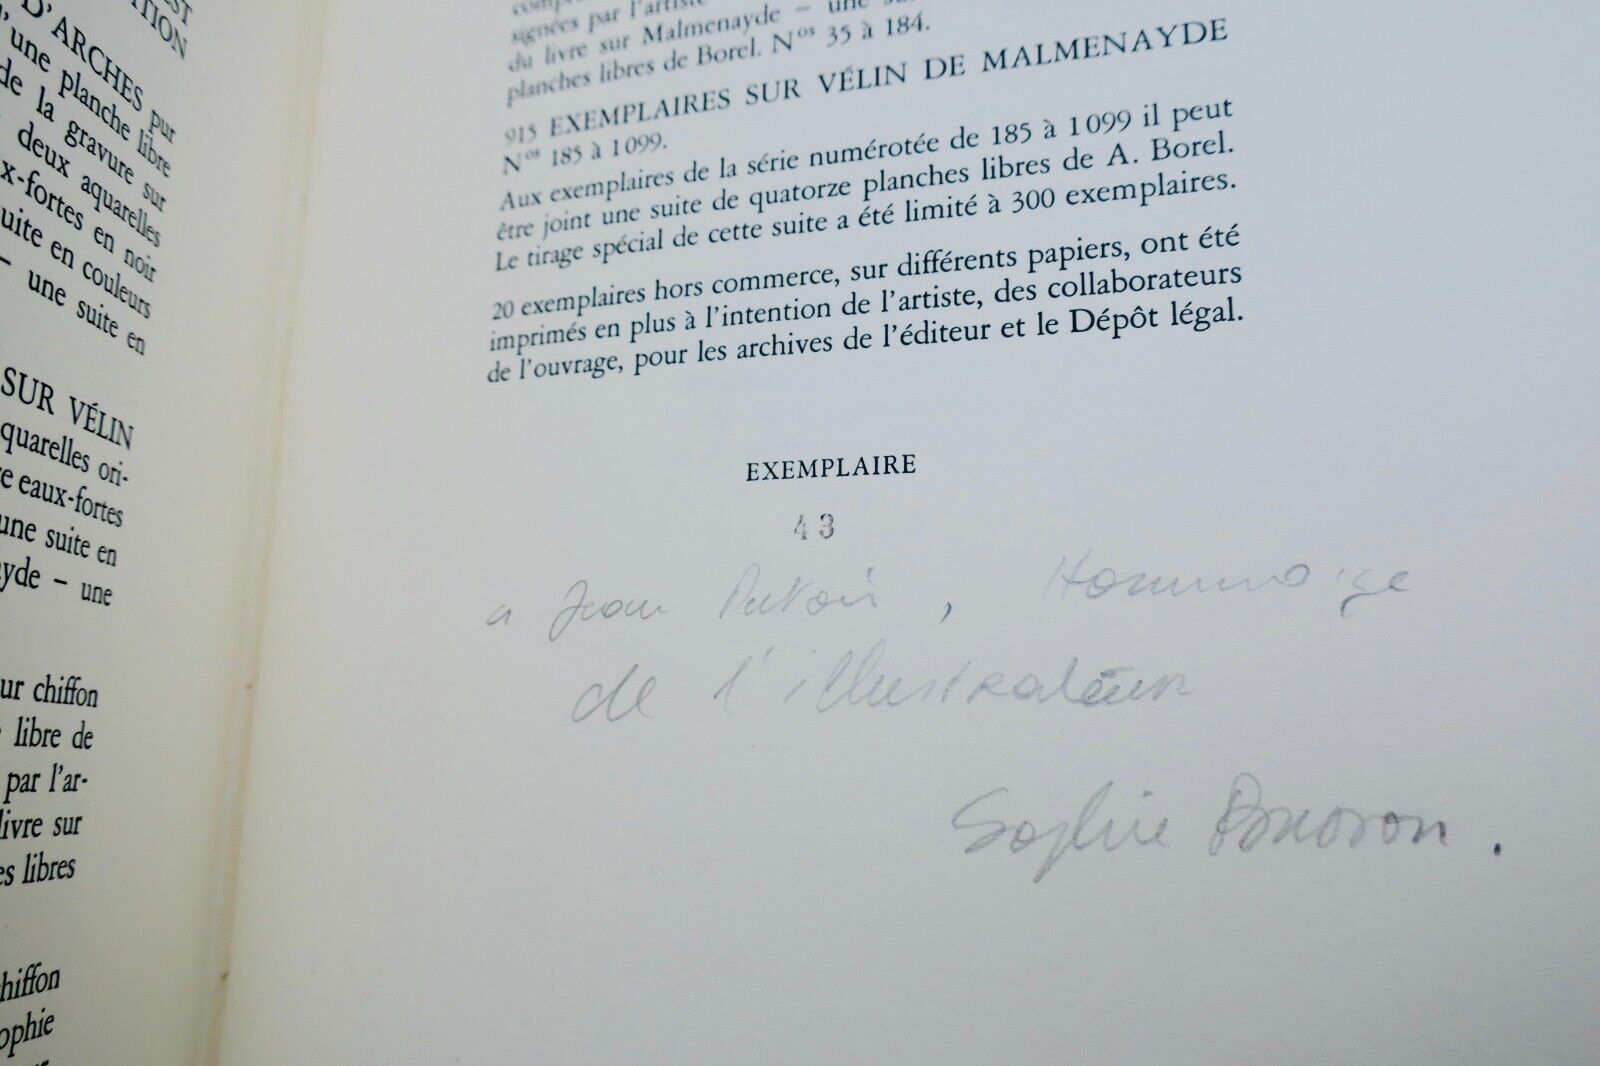 EST
ITION
D'ARCHES pur
d'une planche libre
de la gravure sur
deux aquarelles
x-fortes en noir
suite en couleurs
– une suite en
SUR VÉLIN
quarelles ori-
re eaux-fortes
une suite en
yde – une
ur chiffon
libre de
par l'ar-
livre sur
es libres
chiffon
ophie
signées par l'artiste
du livre sur Malmenayde – une
planches libres de Borel. Nos 35 à 184.
915 EXEMPLAIRES SUR VÉLIN DE MALMENAYDE
Nos 185 à 1099.
Aux exemplaires de la série numérotée de 185 à 1099 il peut
être joint une suite de quatorze planches libres de A. Borel.
Le tirage spécial de cette suite a été limité à 300 exemplaires.
20 exemplaires hors commerce, sur différents papiers, ont été
imprimés en plus à l'intention de l'artiste, des collaborateurs
de l'ouvrage, pour les archives de l'éditeur et le Dépôt légal.
EXEMPLAIRE
43
a Jean , Hommage
de l'illustrateur
Sophie